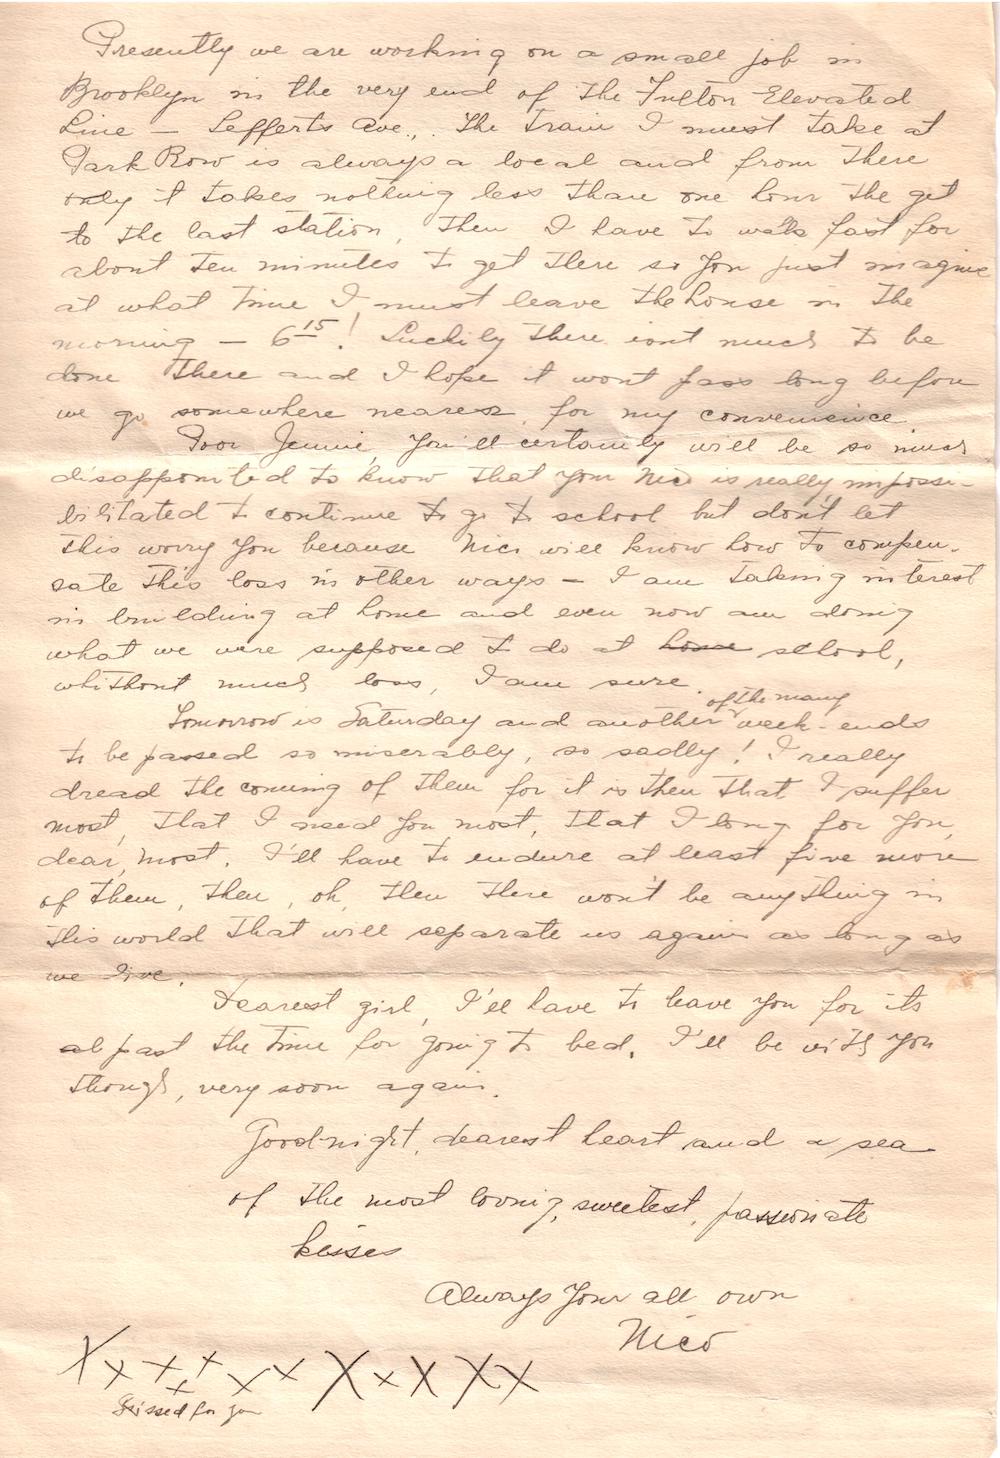 Presently we are working on a small job in
Brooklyn in the very end of the Fulton Elevated
Line — Lefferts Ave.,. The train I must take at
Park Row is always a local and from there
only it takes nothing less than one hour the get
to the last station, then I have to walk fast for
about ten minutes to get there so you just imagine
at what time I must leave the house in the
morning — 6 15! Luckily there isnt much to be
done there and I hope it wont pass long before
we go somewhere nearer for my convenience.
Poor Jennie, you'll certainly will be so much
disappointed to know that your Nico is really impossi-
bilitated to continue to go to school but don't let
this worry you because Nico will know how to compen-
sate this loss in other ways — I am taking interest
in building at home and even now am doing
what we were supposed to do at home school,
whithout much loss, I am sure.
Tomorrow is Saturday and another of the many week-ends
to be passed so miserably, so sadly! I really
dread the coming of them for it is then that I suffer
most, that I need you most, that I long for you,
dear, most. I'll have to endure at least five more
of them, then, oh, then there won't be anything in
this world that will separate us again as long as
we live.
Dearest girl, I'll have to leave you for its
al past the time for going to bed. I'll be with you
though, very soon again.
Good-night, dearest heart and a sea
of the most loving, sweetest, passionate
kisses
Always your all own
Nico
X x x x x x x X x X X X
Kissed for you